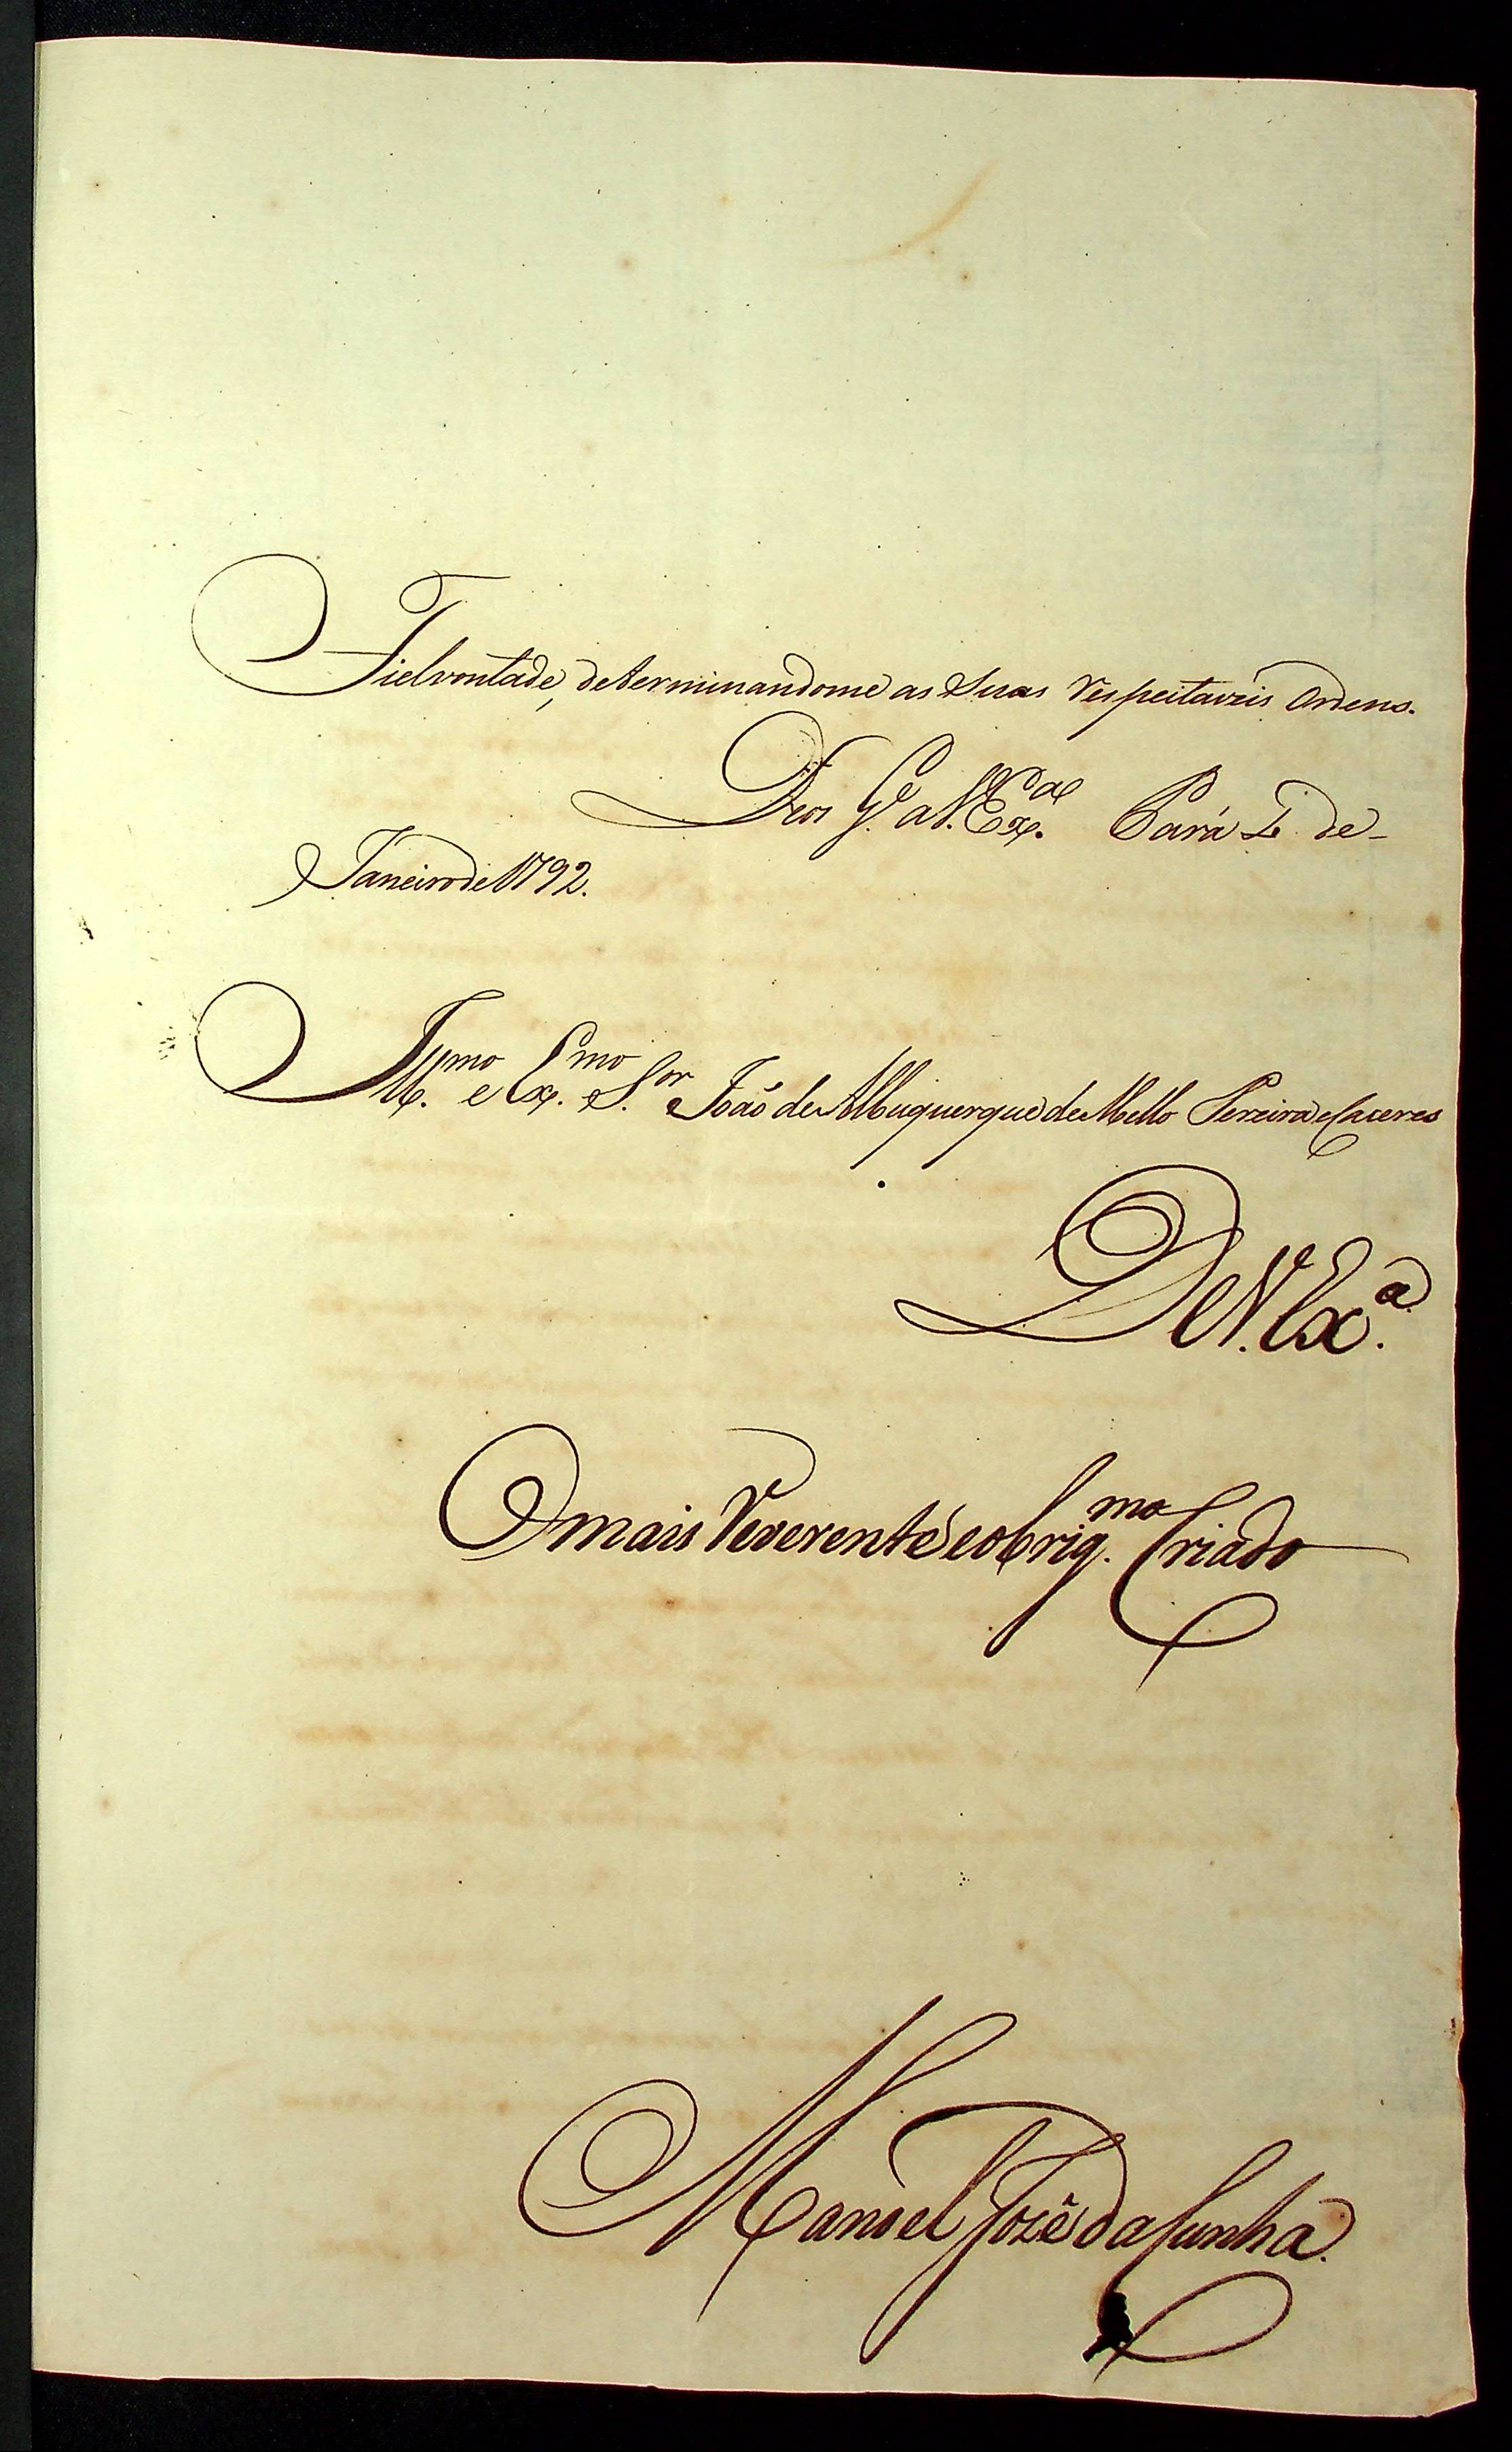 Fiel vontade, determinandome as Suas respeitaveis Ordens.
Deos G.e a V. Ex.a Pará de
Janeiro de 1792.
Ill.mo e Ex.mo S.or João de Albuquerque de Mello Pereira e Caceres
De V. Ex.a
O mais reverente e obrig.mo Criado
Manoel Jozê da Cunha.